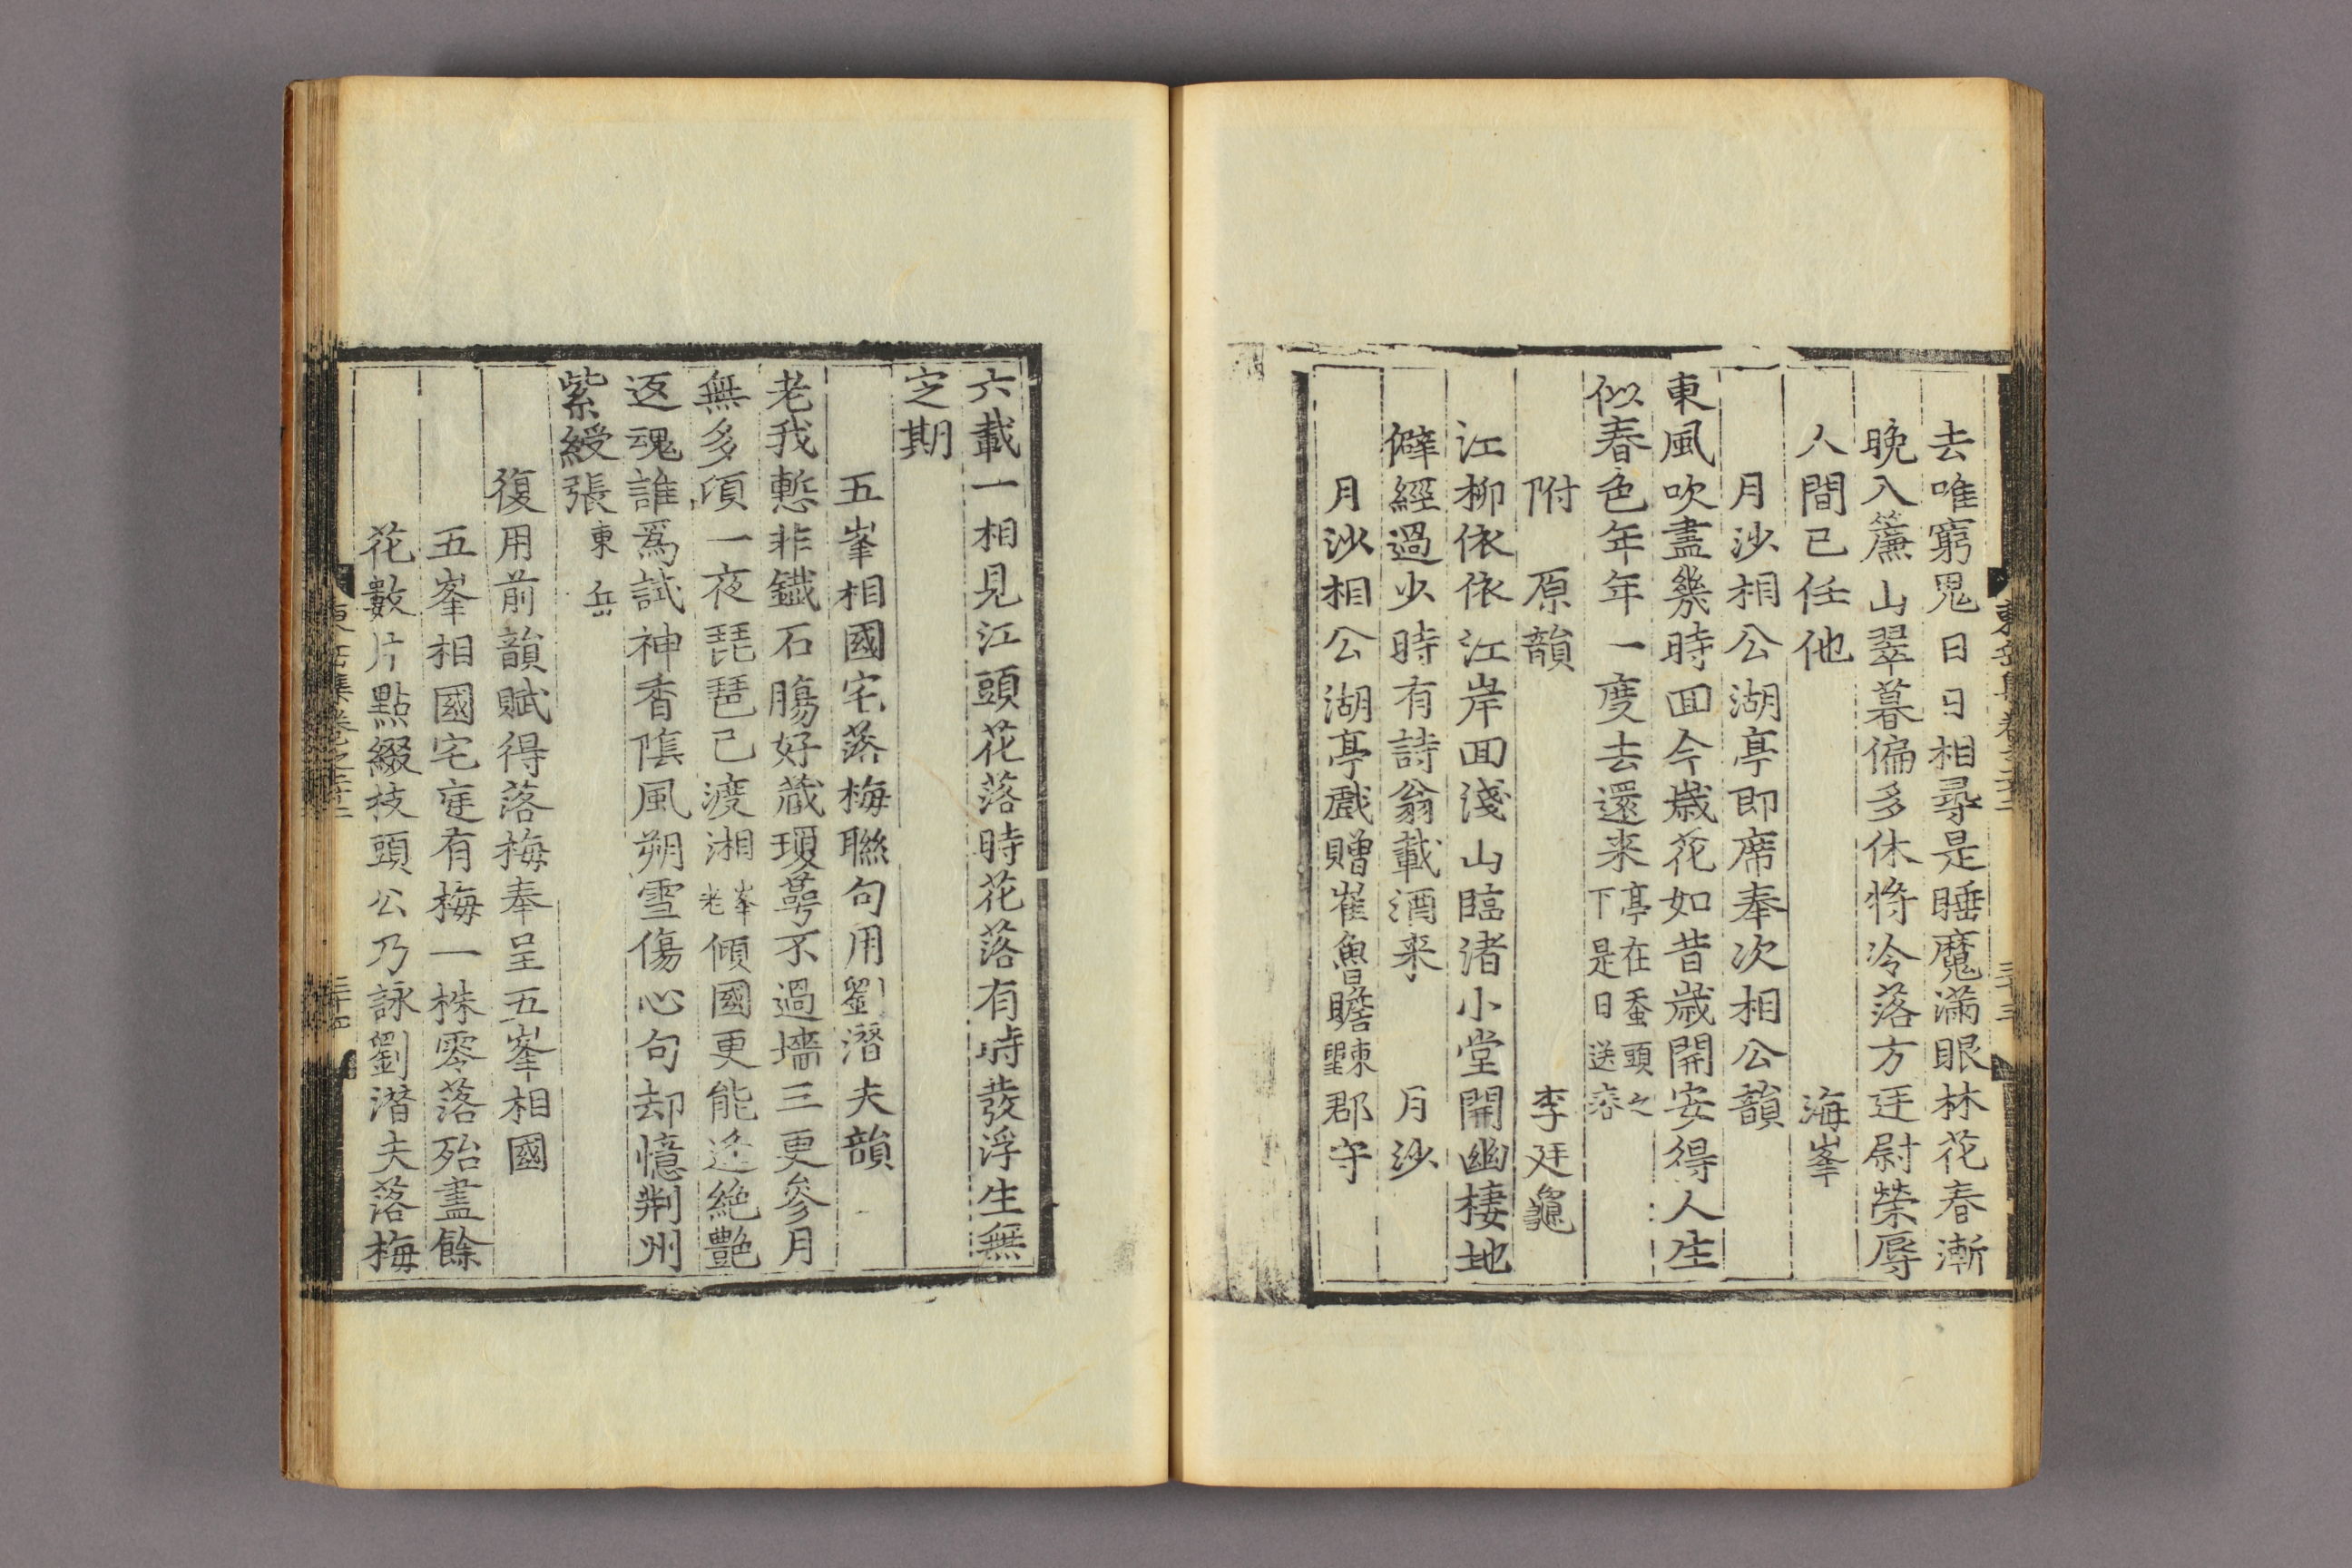 去唯窮鬼日日相尋是睡魔滿眼林花春漸
晚入簾山翠暮偏多休將冷落方廷尉榮辱
人間已任他 海峯
月沙相公湖亭即席奉次相公韻
東風吹盡幾時回今歲花如昔歲開安得人生
似春色年年一度去還来亭在蚕頭之下是日送客
附 原韻 李廷龜
江柳依依江岸回淺山臨渚小堂開幽棲地
僻經過少時有詩翁載酒来 月沙
月沙相公湖亭戲贈崔魯瞻東望郡守
六載一相見江頭花落時花落有時發浮生無
定期
五峯相國宅落梅聯句用劉潛夫韻
老我慙非鐵石膓好蔵瓊萼不過墻三更參月
無多頃一夜琵琶已渡湘峯老傾國更能逃絶艶
返魂誰爲試神香隂風朔雪傷心句却憶荆州
紫綬張東岳
復用前韻賦得落梅奉呈五峯相國
五峯相國宅㝎有梅一株零落殆盡餘
花數片點綴枝頭公乃詠劉潛夫落梅
東岳集卷之二十二
三十四